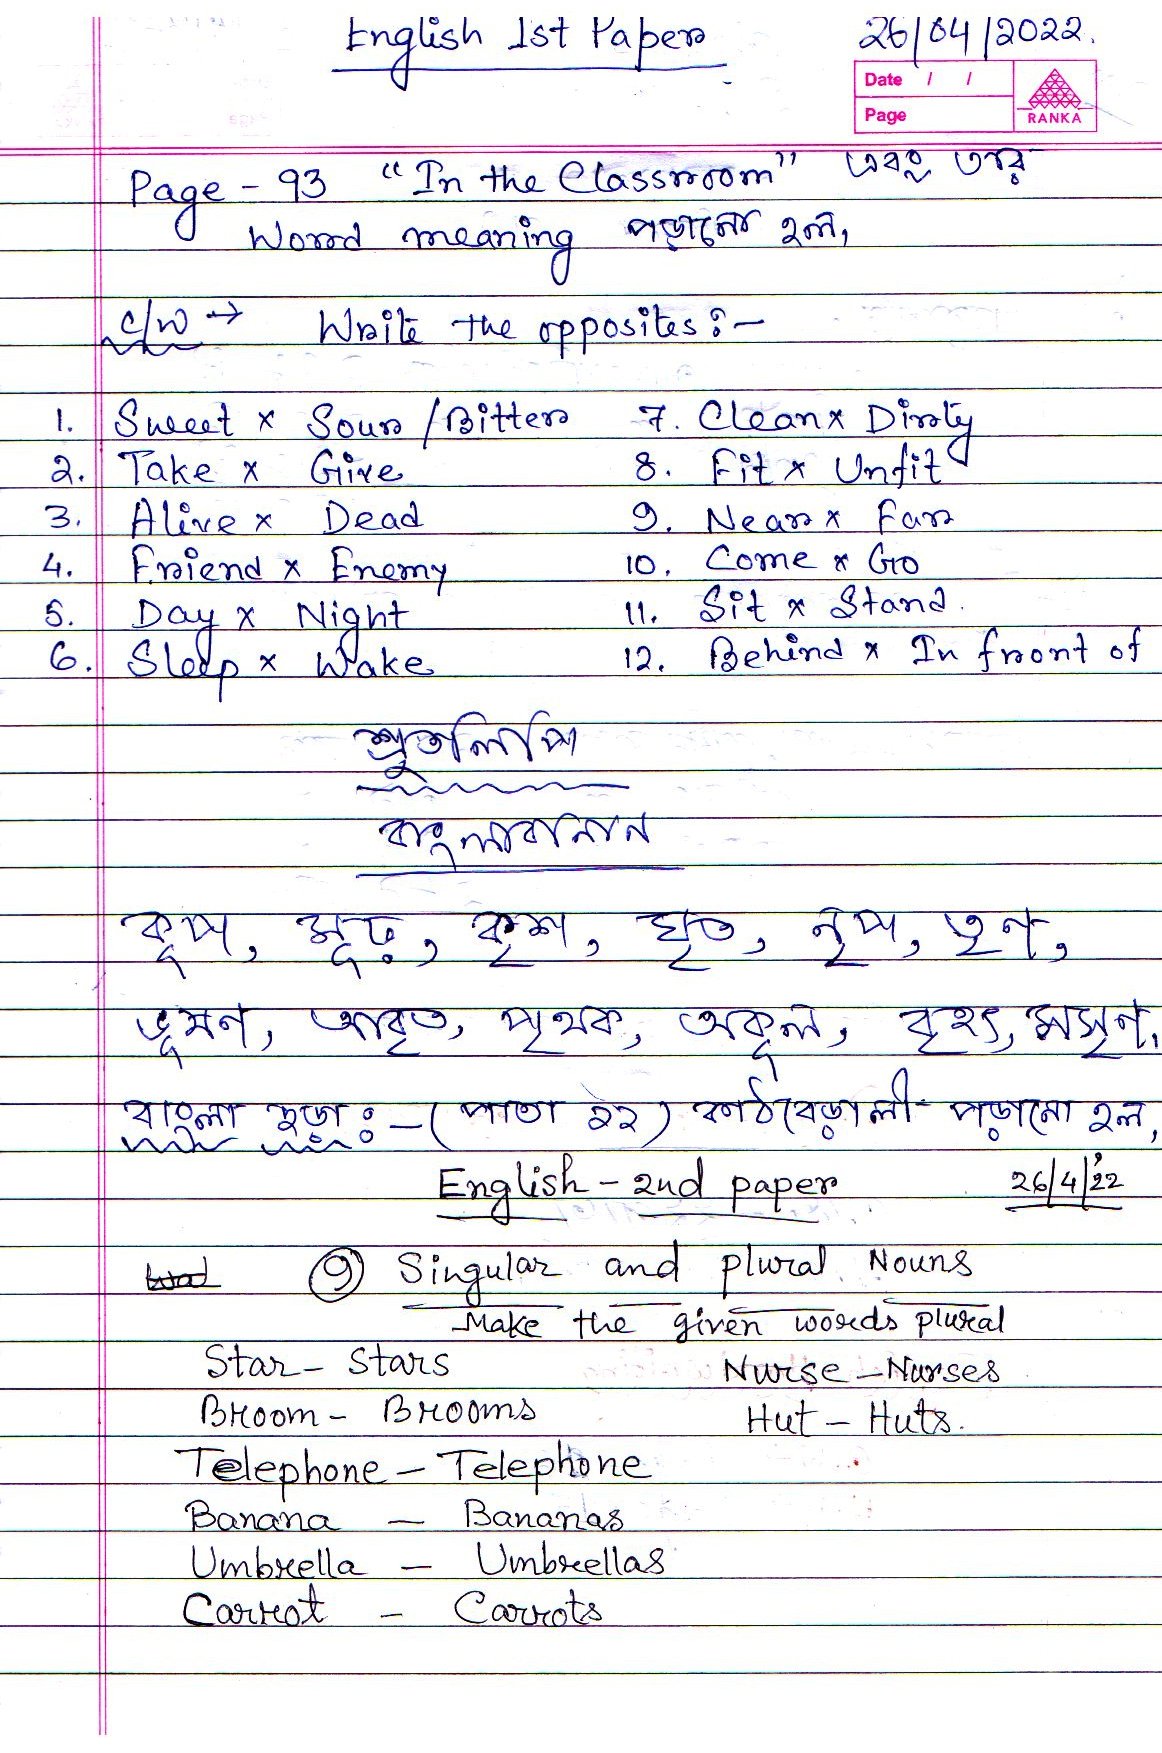 English 1st Paper 26/04/2022.
Date / /
Page
RANKA
Page - 93 "In the Classroom" এবং তার
Word meaning পড়ানো হল,
C/W → Write the opposites :-
1. Sweet x Sour / Bitter 7. Clean x Dirty
2. Take x Give 8. Fit x Unfit
3. Alive x Dead 9. Near x Far
4. Friend x Enemy 10. Come x Go
5. Day x Night 11. Sit x Stand.
6. Sleep x Wake 12. Behind x In front of
শ্রুতলিপি
বাংলা বানান
কূপ, মূঢ়, কৃশ, ঘৃত, নৃপ, তৃণ,
ভূষণ, আবৃত, পৃথক, অকূল, বৃহৎ, মসৃণ.
বাংলা ছড়া :- (পাতা ২২) কাঠবেড়ালী পড়ানো হল,
English - 2nd paper 26/4/22
9 Singular and plural Nouns
Make the given words plural
Star - Stars Nurse - Nurses
Broom - Brooms Hut - Huts.
Telephone - Telephone
Banana - Bananas
Umbrella - Umbrellas
Carrot - Carrots